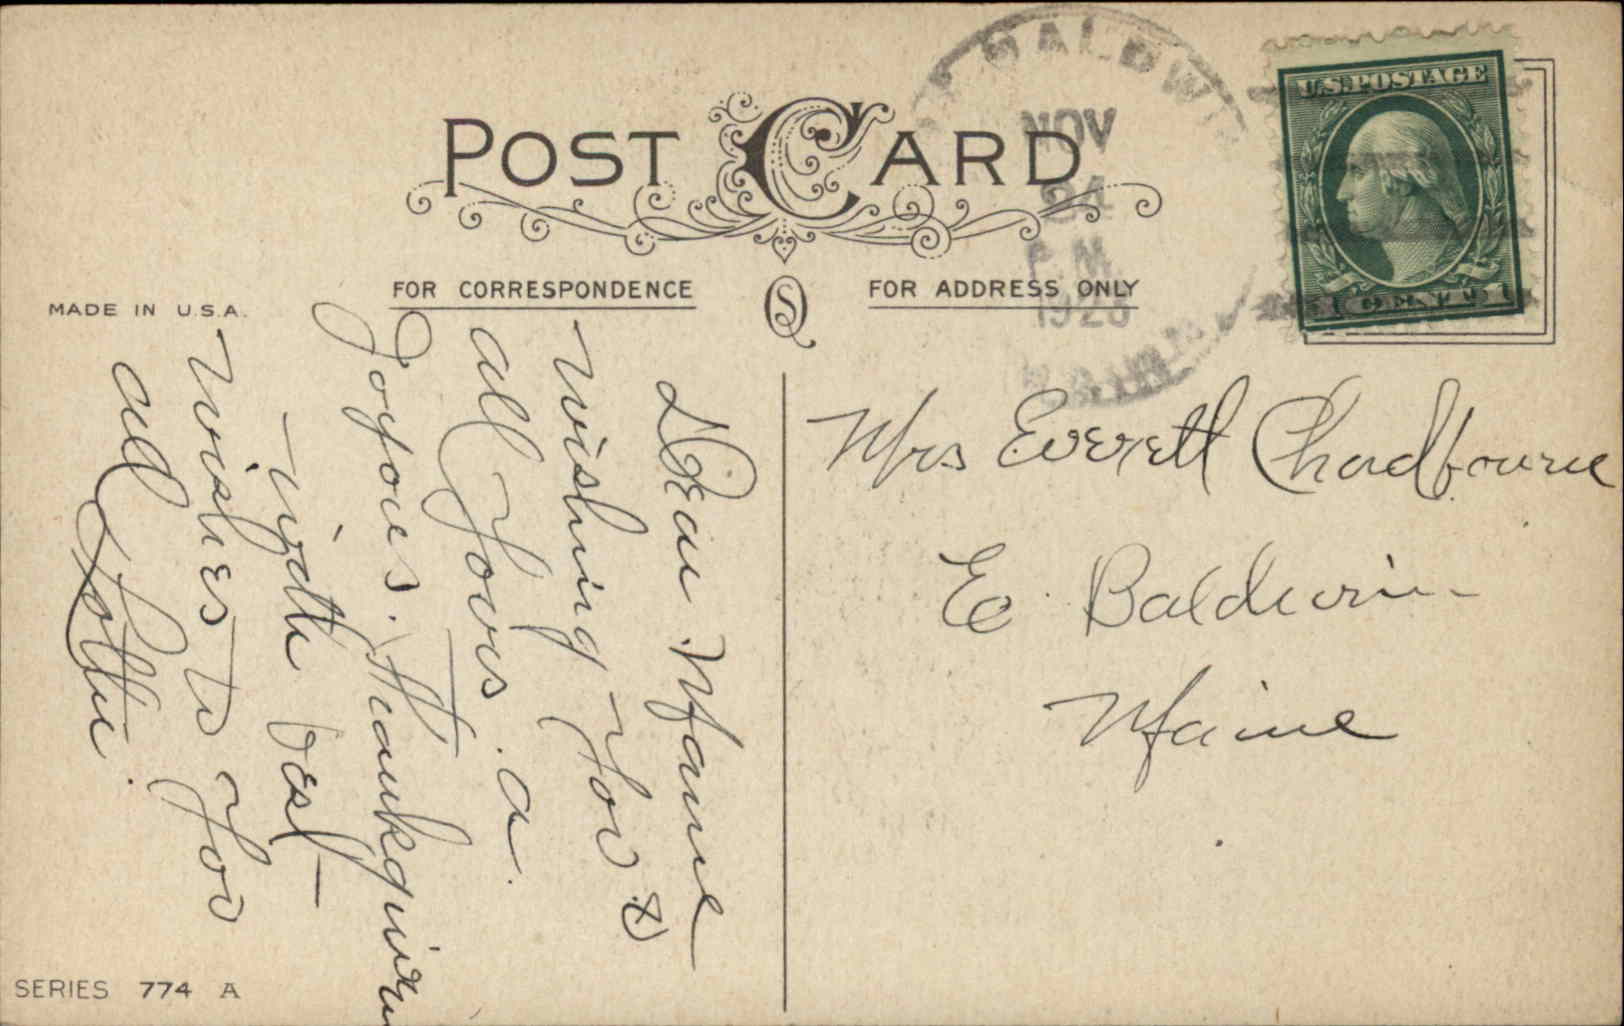 POST CARD
BALDWIN
NOV
24
P.M.
U.S. POSTAGE
1 CENT 1
MADE IN U.S.A.
FOR CORRESPONDENCE
FOR ADDRESS ONLY
Dear Mame
Wishing You &
all Yours. a.
Joyous. Thankgiving
with best
wishes to You
all Lottie.
Mrs Everett Chadbourne
E. Baldwin
Maine
SERIES 774 A